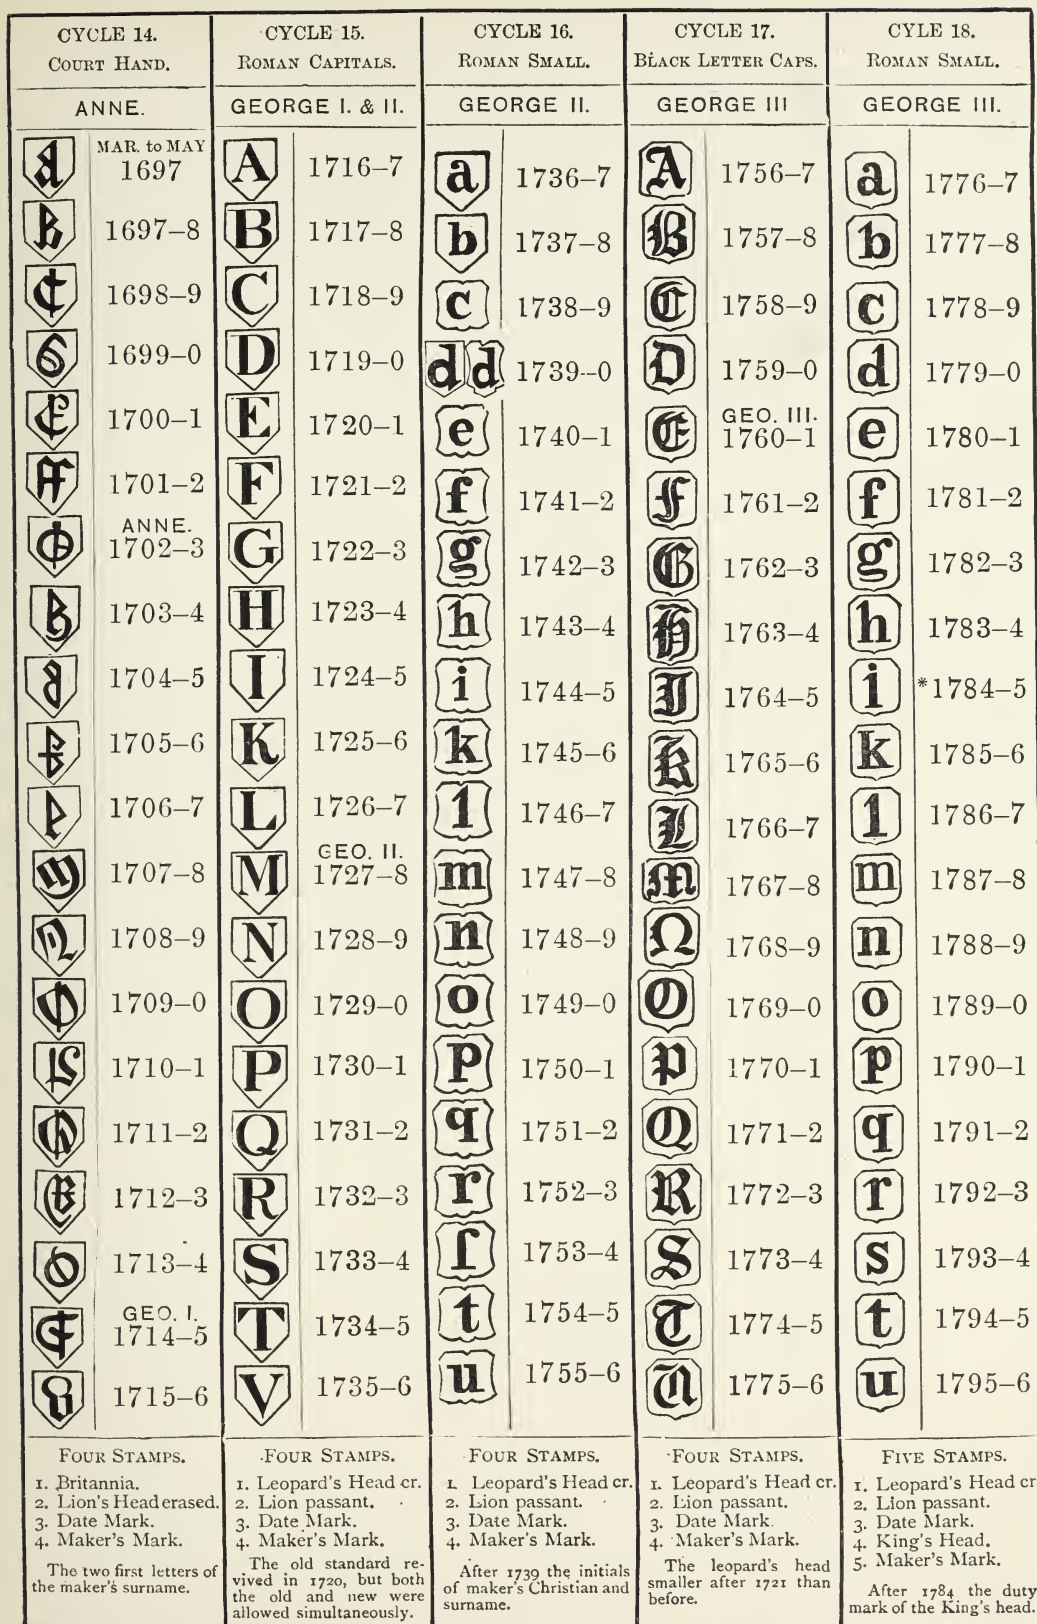 CYCLE 14.
COURT HAND.
ANNE.
MAR. to MAY
1697
1697–8
1698–9
1699–0
1700–1
1701–2
ANNE.
1702–3
1703–4
1704–5
1705–6
1706–7
1707–8
1708–9
1709–0
1710–1
1711–2
1712–3
1713–4
GEO. I.
1714–5
1715–6
FOUR STAMPS.
1. Britannia.
2. Lion's Head erased.
3. Date Mark.
4. Maker's Mark.
The two first letters of
the maker's surname.
CYCLE 15.
ROMAN CAPITALS.
GEORGE I. & II.
A 1716–7
B 1717–8
C 1718–9
D 1719–0
E 1720–1
F 1721–2
G 1722–3
H 1723–4
I 1724–5
K 1725–6
L 1726–7
GEO. II.
M 1727–8
N 1728–9
O 1729–0
P 1730–1
Q 1731–2
R 1732–3
S 1733–4
T 1734–5
V 1735–6
FOUR STAMPS.
1. Leopard's Head cr.
2. Lion passant.
3. Date Mark.
4. Maker's Mark.
The old standard re-
vived in 1720, but both
the old and new were
allowed simultaneously.
CYCLE 16.
ROMAN SMALL.
GEORGE II.
a 1736–7
b 1737–8
c 1738–9
d d 1739–0
e 1740–1
f 1741–2
g 1742–3
h 1743–4
i 1744–5
k 1745–6
l 1746–7
m 1747–8
n 1748–9
o 1749–0
p 1750–1
q 1751–2
r 1752–3
ſ 1753–4
t 1754–5
u 1755–6
FOUR STAMPS.
1. Leopard's Head cr.
2. Lion passant.
3. Date Mark.
4. Maker's Mark.
After 1739 the initials
of maker's Christian and
surname.
CYCLE 17.
BLACK LETTER CAPS.
GEORGE III
A 1756–7
B 1757–8
C 1758–9
D 1759–0
GEO. III.
E 1760–1
F 1761–2
G 1762–3
H 1763–4
I 1764–5
K 1765–6
L 1766–7
M 1767–8
N 1768–9
O 1769–0
P 1770–1
Q 1771–2
R 1772–3
S 1773–4
T 1774–5
U 1775–6
FOUR STAMPS.
1. Leopard's Head cr.
2. Lion passant.
3. Date Mark
4. Maker's Mark.
The leopard's head
smaller after 1721 than
before.
CYLE 18.
ROMAN SMALL.
GEORGE III.
a 1776–7
b 1777–8
c 1778–9
d 1779–0
e 1780–1
f 1781–2
g 1782–3
h 1783–4
i *1784–5
k 1785–6
l 1786–7
m 1787–8
n 1788–9
o 1789–0
p 1790–1
q 1791–2
r 1792–3
s 1793–4
t 1794–5
u 1795–6
FIVE STAMPS.
1. Leopard's Head cr
2. Lion passant.
3. Date Mark.
4. King's Head.
5. Maker's Mark.
After 1784 the duty
mark of the King's head.